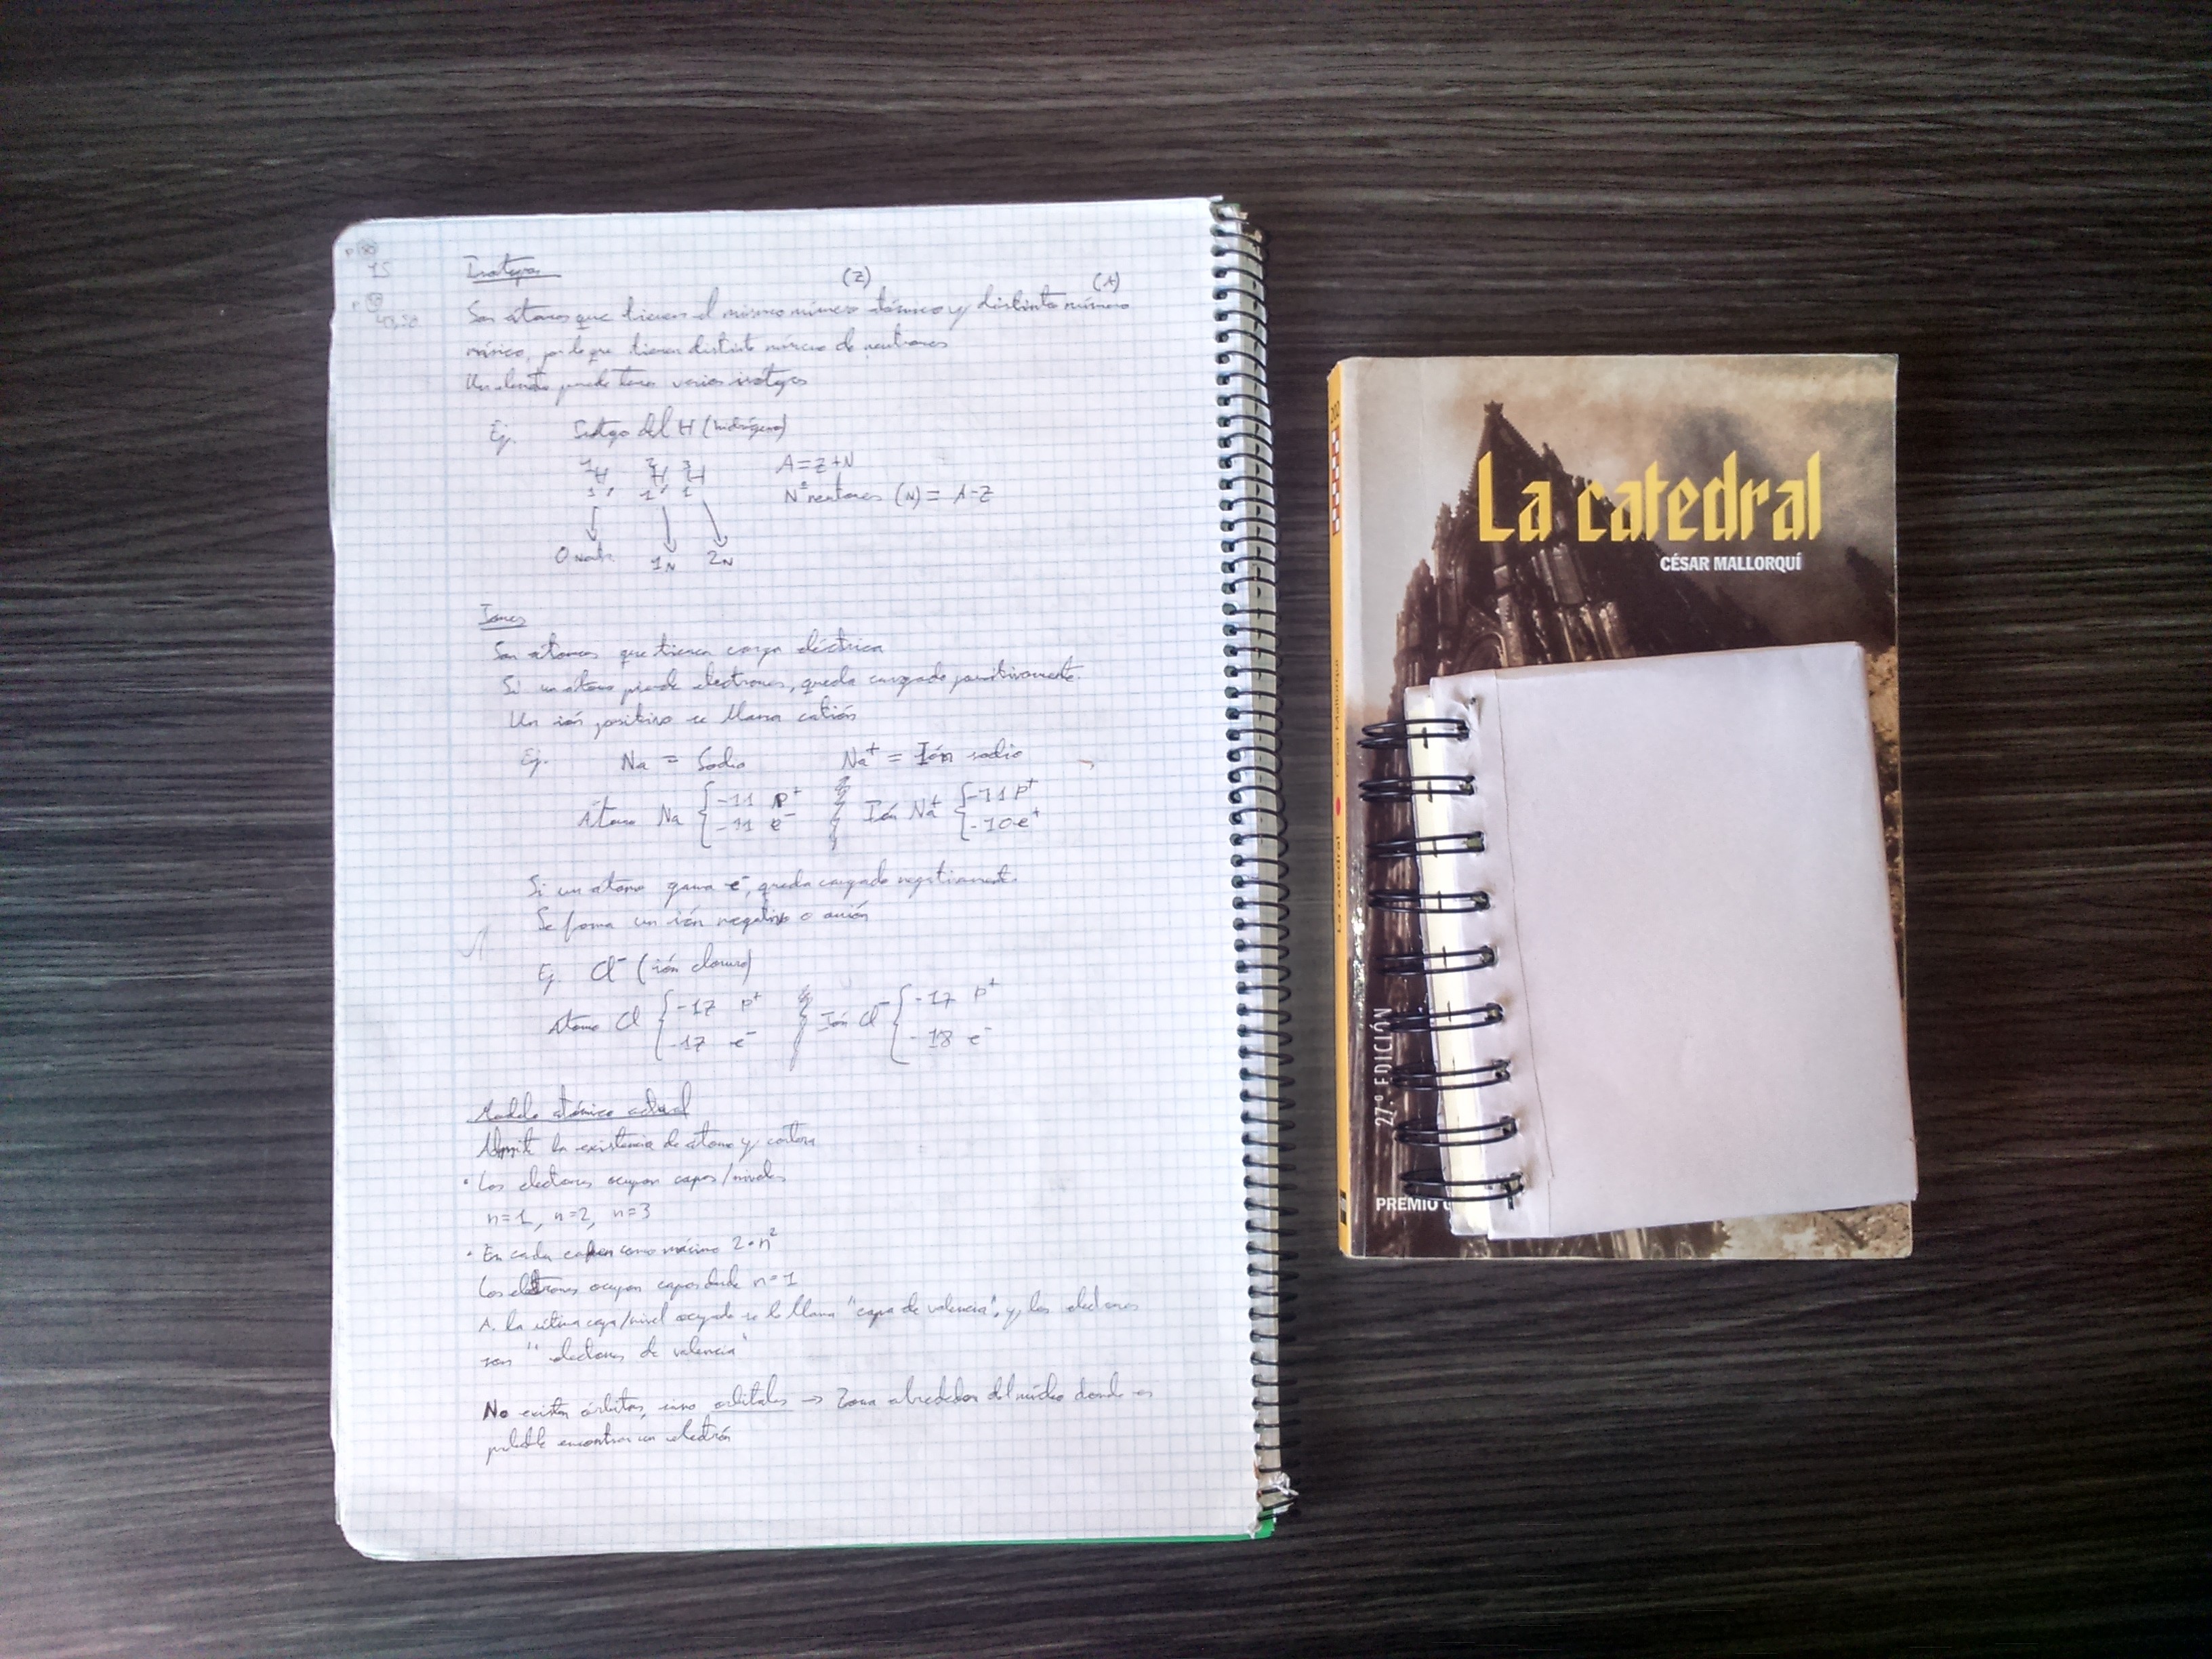 15
Isotopos
(Z) (A)
Son átomos que tienen el mismo número atómico y distinto número
másico, por lo que tienen distinto número de neutrones
Un elemento puede tener varios isotopos
Ej. Isotopo del H (hidrógeno)
1H, 2H, 3H A=Z+N
1 1 1 Nº neutrones (N) = A-Z
0 neutr. 1N 2N
Iones
Son átomos que tienen carga eléctrica
Si un átomo pierde electrones, queda cargado positivamente.
Un ión positivo se llama catión
Ej. Na = Sodio Na+ = Ión sodio
Átomo Na { -11 p+ Ión Na+ { -11 p+
-11 e- -10 e+
Si un atomo gana e-, queda cargado negativament.
Se forma un ión negativo o anión
Ej. Cl- (ión cloruro)
Atomo Cl { -17 p+ Ión Cl- { -17 p+
-17 e- -18 e-
Modelo atómico actual
Admite la existencia de átomo y corteza
• Los electrones ocupan capas/niveles
n=1, n=2, n=3
• En cada como máximo 2·n²
Los electrones ocupan capas desde n=1
A la última capa/nivel ocupado se le llama "capa de valencia", y los electrones
son "electrones de valencia"
No existen órbitas, sino orbitales → Zona alrededor del núcleo donde es
probable encontrar un electrón
202
La catedral César Mallorquí
La catedral
CÉSAR MALLORQUÍ
27.º EDICIÓN
PREMIO